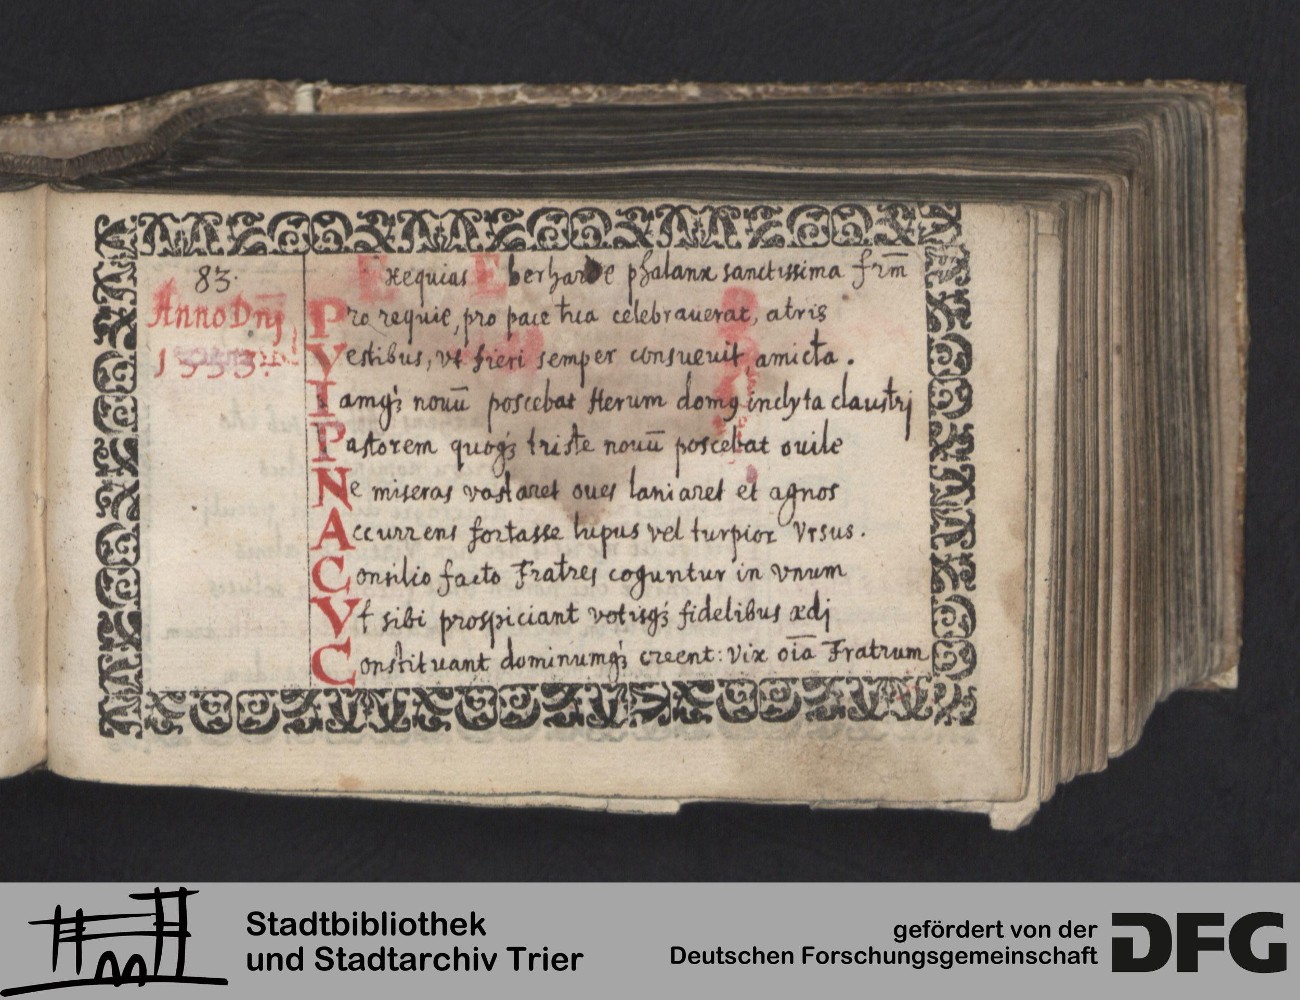 83.
Anno Dnj
1533.
Exequias Eberharde phalanx sanctissima frm̄
Pro requie, pro pace tua celebrauerat, atris
Vestibus, vt fieri semper consueuit, amicta.
Iamqȝ nouū poscebat Herum domꝰ inclyta claustrj
Pastorem quoqȝ triste nouū poscebat ouile
Ne miseras vastaret oues laniaret et agnos
Accurrens fortasse lupus vel turpior Vrsus.
Consilio facto Fratres coguntur in vnum
Vt sibi prospiciant votisqȝ fidelibus ædj
Constituant dominumqȝ creent: Vix oīa Fratrum
Stadtbibliothek
und Stadtarchiv Trier
gefördert von der
Deutschen Forschungsgemeinschaft
DFG